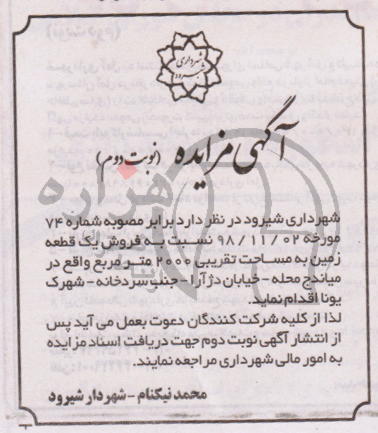 شهرداری
شیرود
آگهی مزایده (نوبت دوم)
هزاره
شهرداری شیرود در نظر دارد برابر مصوبه شماره ۷۳
مورخه ۹۸/۱۱/۰۲ نسبت به فروش یک قطعه
زمین به مساحت تقریبی ۲۰۰۰ متر مربع واقع در
میاندج محله - خیابان دژآرا - جنب سردخانه - شهرک
یونا اقدام نماید.
لذا از کلیه شرکت کنندگان دعوت بعمل می آید پس
از انتشار آگهی نوبت دوم جهت دریافت اسناد مزایده
به امور مالی شهرداری مراجعه نمایند.
محمد نیکنام - شهردار شیرود